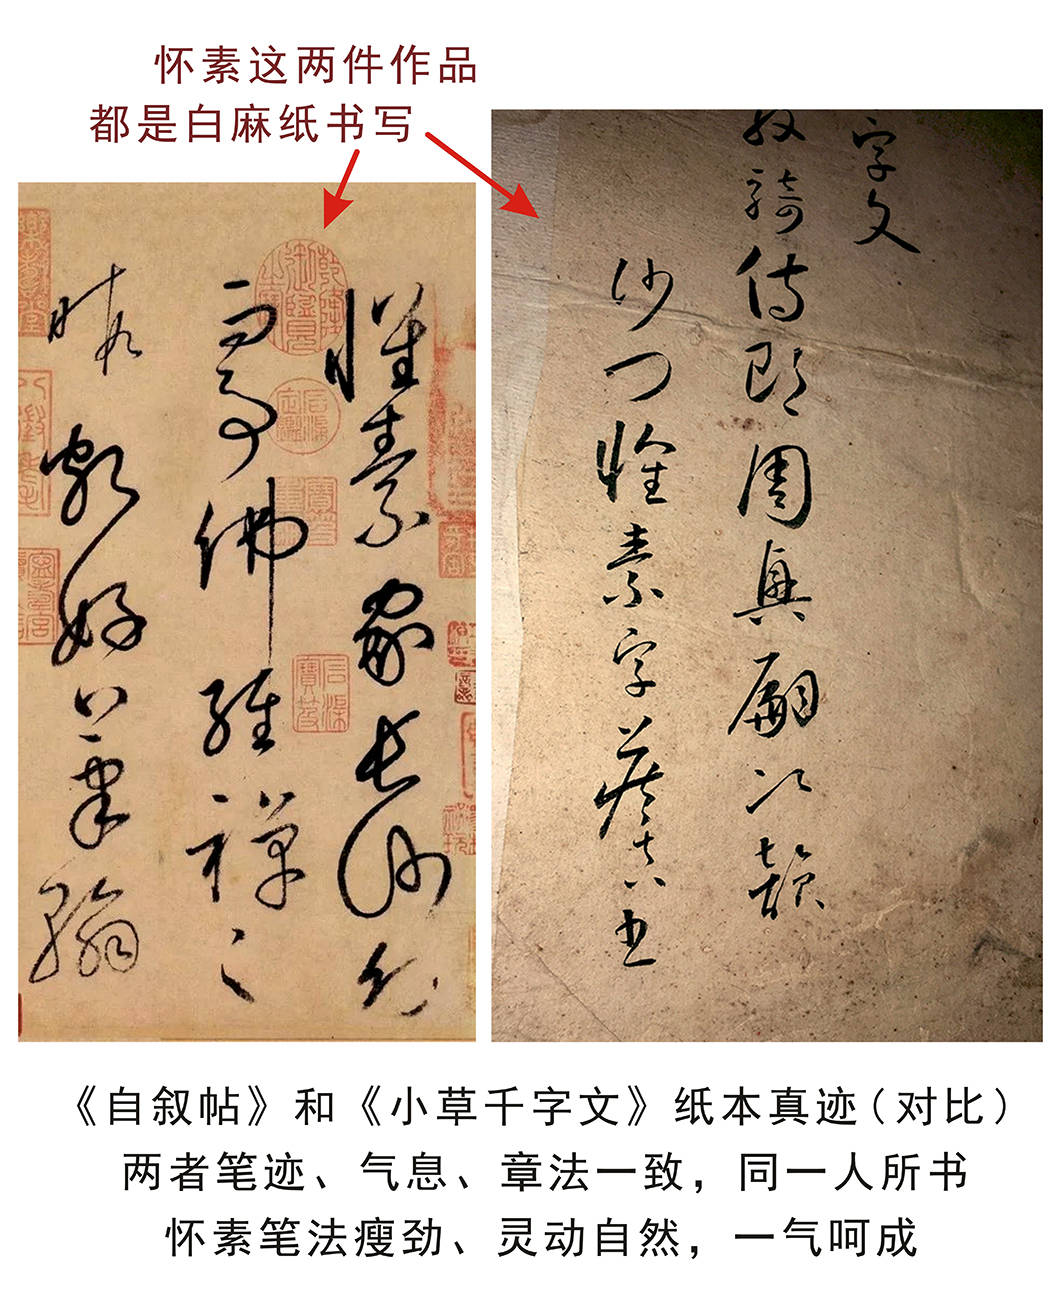 怀素这两件作品
都是白麻纸书写
懷素家長沙幼
而事佛經禪之
暇頗好筆翰
字文
騎侍郎周興嗣次韻
沙門懷素字藏真書
《自叙帖》和《小草千字文》纸本真迹(对比)
两者笔迹、气息、章法一致，同一人所书
怀素笔法瘦劲、灵动自然，一气呵成